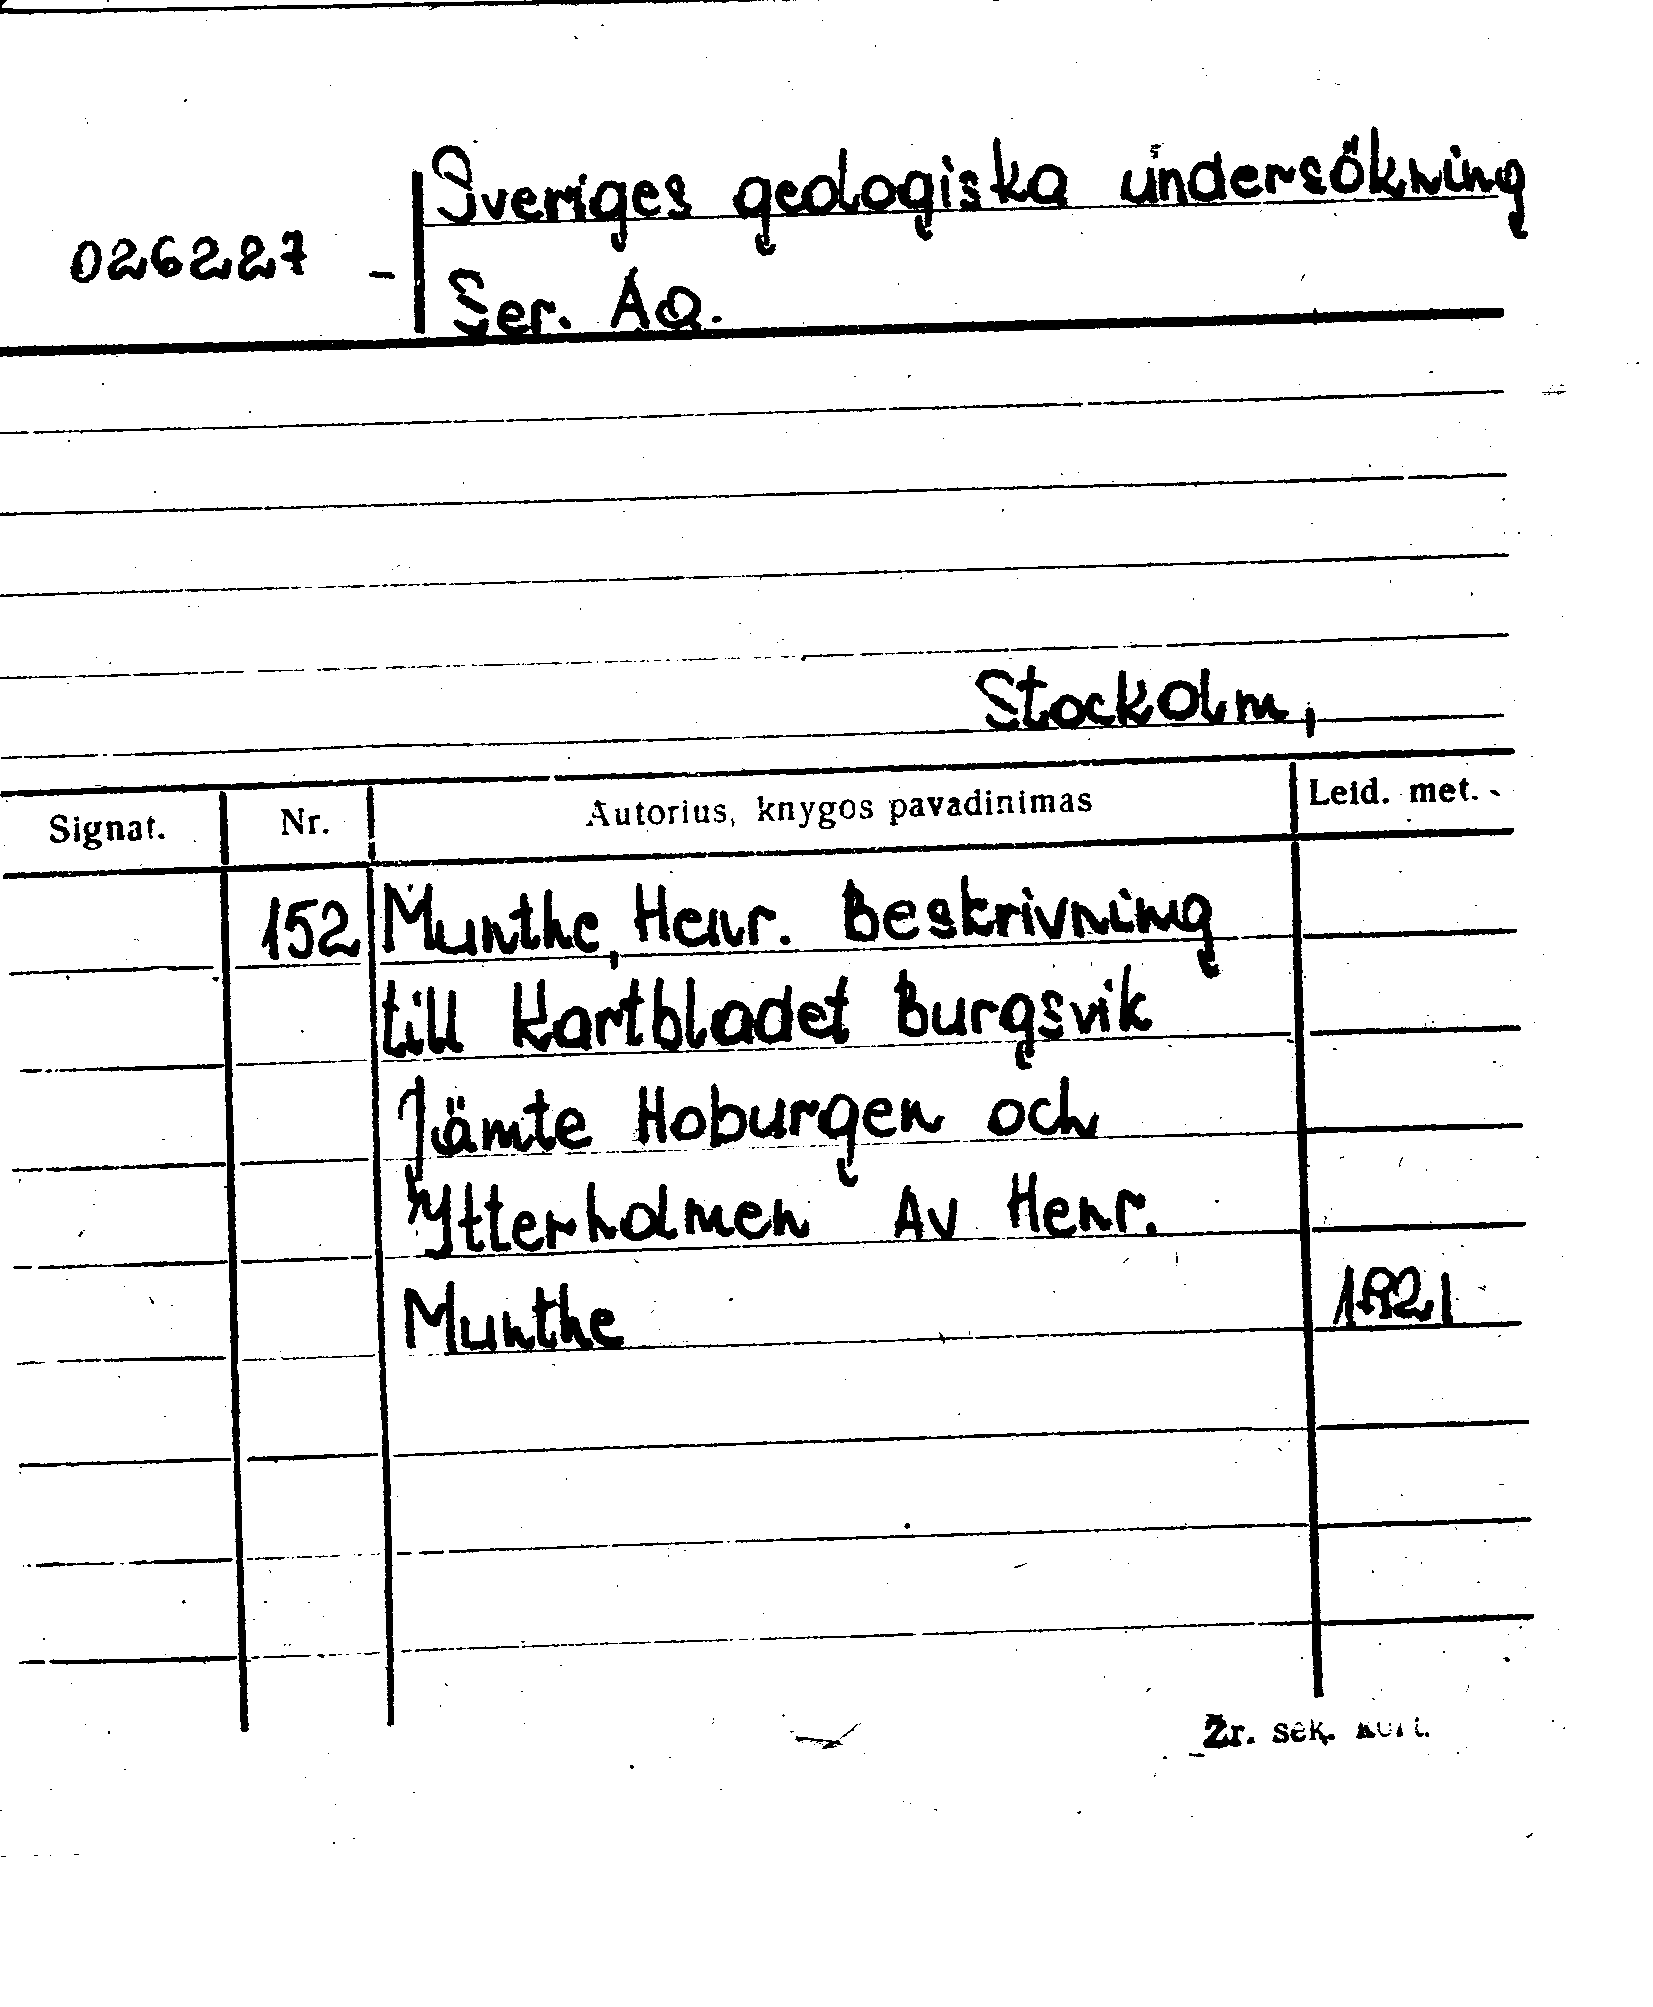 Sveriges geologiska undersökning
026227 -
Ser. Aa.
Stockolm,
Signat. Nr. Autorius, knygos pavadinimas Leid. met.
152 Munthe, Henr. Beskrivning
till Kartbladet Burgsvik
Jämte Hoburgen och
Ytterholmen Av Henr.
Munthe 1821
Žr. sek. kort.